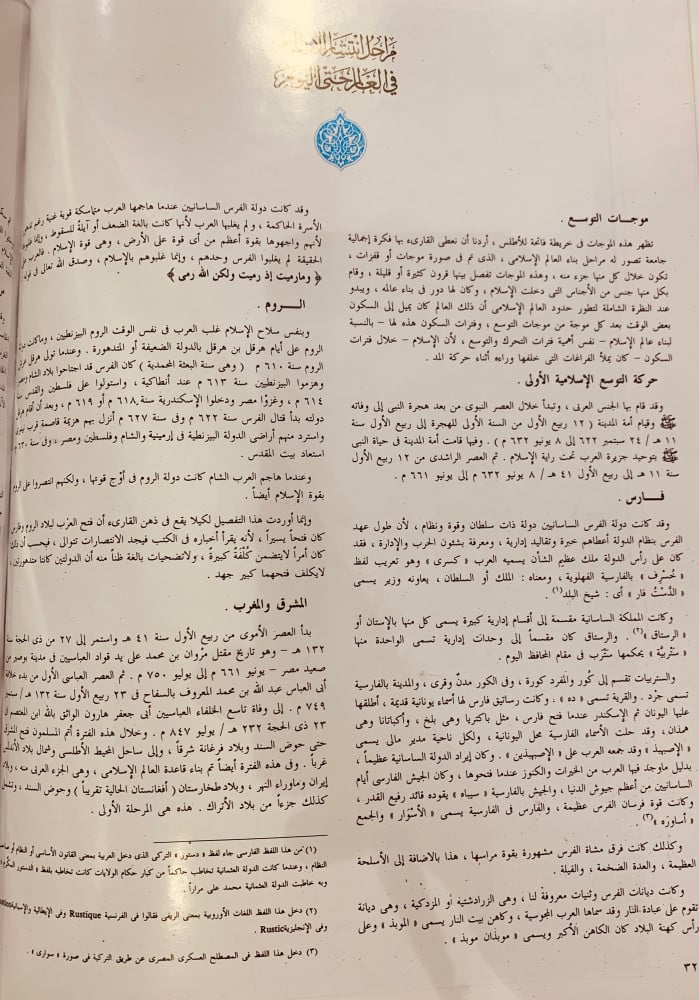 مراحل انتشار
في العالم حتى اليوم
موجات التوسع .
تظهر هذه الموجات فى خريطة فاتحة للأطلس ، أردنا أن نعطى القارىء بها فكرة إجمالية
جامعة تصور له مراحل بناء العالم الإسلامى ، الذى تم فى صورة موجات أو قفزات ،
تكون خلال كل منها جزء منه ، وهذه الموجات تفصل بينها قرون كثيرة أو قليلة ، وقام
بكل منها جنس من الأجناس التى دخلت الإسلام ، وكان لها دور فى بناء عالمه ، ويبدو
عند النظرة الشاملة لتطور حدود العالم الإسلامى أن ذلك العالم كان يميل إلى السكون
بعض الوقت بعد كل موجة من موجات التوسع ، وفترات السكون هذه لها – بالنسبة
لبناء عالم الإسلام – نفس أهمية فترات التحرك والتوسع ، لأن الإسلام – خلال فترات
السكون – كان يملأ الفراغات التى خلفها وراءه أثناء حركة المد .
حركة التوسع الإسلامية الأولى .
وقد قام بها الجنس العربى ، وتبدأ خلال العصر النبوى من بعد هجرة النبى إلى وفاته
ﷺ وقيام أمة المدينة ( ١٢ ربيع الأول من السنة الأولى للهجرة إلى ربيع الأول سنة
١١ هـ / ٢٤ سبتمبر ٦٢٢ إلى ٨ يونيو ٦٣٢ م ) . وفيها قامت أمة المدينة فى حياة النبى
ﷺ بتوحيد جزيرة العرب تحت راية الإسلام . ثم العصر الراشدى من ١٢ ربيع الأول
سنة ١١ هـ إلى ربيع الأول ٤١ هـ / ٨ يونيو ٦٣٢ م إلى يونيو ٦٦١ م .
فــارس .
وقد كانت دولة الفرس الساسانيين دولة ذات سلطان وقوة ونظام ، لأن طول عهد
الفرس بنظام الدولة أعطاهم خبرة وتقاليد إدارية ، ومعرفة بشئون الحرب والإدارة ، فقد
كان على رأس الدولة ملك عظيم الشأن يسميه العرب « كسرى » وهو تعريب لفظ
« خُسرف » بالفارسية الفهلوية ، ومعناه : الملك أو السلطان ، يعاونه وزير يسمى
« الدَّسْتُ فار » أى : شيخ البلد(١) .
وكانت المملكة الساسانية مقسمة إلى أقسام إدارية كبيرة يسمى كل منها بالإستان أو
« الرستاق »(٢) . والرستاق كان مقسماً إلى وحدات إدارية تسمى الواحدة منها
« سَتْربيَّة » يحكمها سَتْرَب فى مقام المحافظ اليوم .
والستربيات تقسم إلى كُور والمفرد كورة ، وفى الكور مدنٌ وقرى ، والمدينة بالفارسية
تسمى جرْد . والقرية تسمى « ده » . وكانت رساتيق فارس لها أسماء يونانية قديمة ، أطلقها
عليها اليونان ثم الإسكندر عندما فتح فارس ، مثل باكتريا وهى بلخ ، وأكباتانا وهى
همذان ، وقد حلت الأسماء الفارسية محل اليونانية ، ولكل ناحية مدير مالى يسمى
« الإصبهيذ » وقد جمعه العرب على « الإصبهبذين » . وكان إيراد الدولة الساسانية عظيماً ،
بدليل ماوجد فيها العرب من الخيرات والكنوز عندما فتحوها ، وكان الجيش الفارسى أيام
الساسانيين من أعظم جيوش الدنيا ، والجيش بالفارسية « سيباه » يقوده قائد رفيع القدر ،
وكانت قوة فرسان الفرس عظيمة ، والفارس فى الفارسية يسمى « الأُسْوَار » والجمع
« أساورَه »(٣) .
وكذلك كانت فرق مشاة الفرس مشهورة بقوة مراسها ، هذا بالاضافة إلى الأسلحة
العظيمة ، والعدة الضخمة ، والفيلة .
وكانت ديانات الفرس وثنيات معروفة لنا ، وهى الزرادشتية أو المزدكية ، وهى ديانة
تقوم على عبادة النار وقد سماها العرب المجوسية ، وكاهن بيت النار يسمى « الموبذ » وعلى
رأس كهنة البلاد كان الكاهن الأكبر ويسمى « موبذان موبذ » .
وقد كانت دولة الفرس الساسانيين عندما هاجمها العرب متماسكة قوية غنية رغم
الأسرة الحاكمة ، ولم يغلبها العرب لأنها كانت بالغة الضعف أو آيلةً للسقوط ، وإنما
لأنهم واجهوها بقوة أعظم من أى قوة على الأرض ، وهى قوة الإسلام . فالعرب
الحقيقة لم يغلبوا الفرس وحدهم ، وإنما غلبوهم بالإسلام ، وصدق الله تعالى فى قوله
﴿ ومارميت إذ رميت ولكن الله رمى ﴾
الــروم .
وبنفس سلاح الإسلام غلب العرب فى نفس الوقت الروم البيزنطيين ، وماكانت دولة
الروم على أيام هرقل بن هرقل بالدولة الضعيفة أو المتدهورة . وعندما تولى هرقل
الروم سنة ٦١٠ م ( وهى سنة البعثة المحمدية ) كان الفرس قد اجتاحوا بلاد الشام ومصر
وهزموا البيزنطيين سنة ٦١٣ م عند أنطاكية ، واستولوا على فلسطين والقدس سنة
٦١٤ م ، وغزوا مصر ودخلوا الإسكندرية سنة ٦١٨ م أو ٦١٩ م ، وبعد أن أقام هرقل
دولته بدأ قتال الفرس سنة ٦٢٢ م وفى سنة ٦٢٧ م أنزل بهم هزيمة قاصمة قرب نينوى
واسترد منهم أراضى الدولة البيزنطية فى إرمينية والشام وفلسطين ومصر ، وفى سنة ٦٣٠ م
استعاد بيت المقدس .
وعندما هاجم العرب الشام كانت دولة الروم فى أوْج قوتها ، ولكنهم انتصروا على الروم
بقوة الإسلام أيضاً .
وإنما أوردت هذا التفصيل لكيلا يقع فى ذهن القارىء أن فتح العرب لبلاد الروم وفارس
كان فتحاً يسيراً ، لأنه يقرأ أخباره فى الكتب فيجد الانتصارات تتوالى ، فيحسب أن ذلك
كان أمراً لايتضمن كُلْفَةً كبيرةً ، ولاتضحيات بالغة ظناً منه أن الدولتين كانتا متدهورتين ،
لايكلف فتحهما كبير جهد .
المشرق والمغرب .
بدأ العصر الأموى من ربيع الأول سنة ٤١ هـ واستمر إلى ٢٧ من ذى الحجة سنة
١٣٢ هـ – وهو تاريخ مقتل مَرْوان بن محمد على يد قواد العباسيين فى مدينة بوصير من
صعيد مصر – يونيو ٦٦١ م إلى يوليو ٧٥٠ م . ثم العصر العباسى الأول من بدء خلافة
أبى العباس عبد الله بن محمد المعروف بالسفاح فى ٢٣ ربيع الأول سنة ١٣٢ هـ / سنة
٧٤٩ م . إلى وفاة تاسع الخلفاء العباسيين أبى جعفر هارون الواثق بالله ابن المعتصم فى
٢٣ ذى الحجة ٢٣٢ هـ / يوليو ٨٤٧ م . وخلال هذه الفترة أتم المسلمون فتح الشرق
حتى حوض السند وبلاد فرغانة شرقاً ، وإلى ساحل المحيط الأطلسى وشمال بلاد الأندلس
غرباً . وفى هذه الفترة أيضاً تم بناء قاعدة العالم الإسلامى ، وهى الجزء العربى منه ، وبلاد
إيران وماوراء النهر ، وبلاد طخارستان ( أفغانستان الحالية تقريباً ) وحوض السند ، وتشمل
كذلك جزءاً من بلاد الأتراك . هذه هى المرحلة الأولى .
(١) من هذا اللفظ الفارسى جاء لفظ « دستور » التركى الذى دخل العربية بمعنى القانون الأساسى أو النظام أو صاحب
النظام ، وعندما كانت الدولة العثمانية تخاطب حاكماً من كبار حكام الولايات كانت تخاطبه بلفظ « الدستور المكرّم »
وبه خاطبت الدولة العثمانية محمد على مراراً .
(٢) دخل هذا اللفظ اللغات الأوروبية بمعنى الريفى فقالوا فى الفرنسية Rustique وفى الإيطالية والإسبانية
وفى الإنجليزية Rustic .
(٣) دخل هذا اللفظ فى المصطلح العسكرى المصرى عن طريق التركية فى صورة « سوارى » .
٣٢